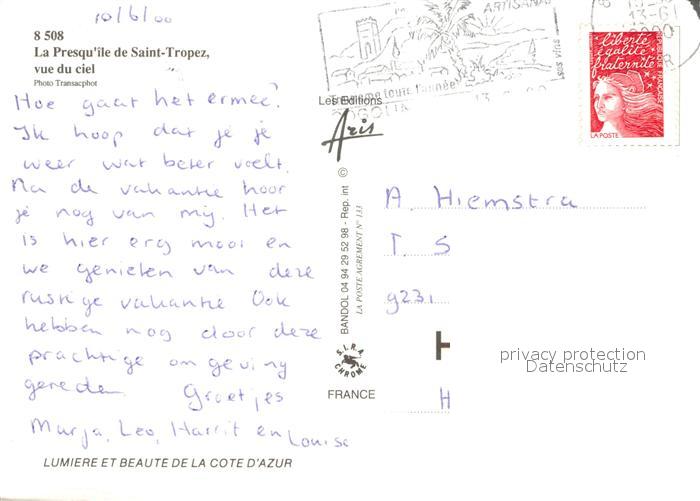 10/6/00
8 508
La Presqu'île de Saint-Tropez,
vue du ciel
Photo Transacphot
Hoe gaat het ermee?
Ik hoop dat je je
weer wat beter voelt.
Na de vakantie hoor
je nog van mij. Het
is hier erg mooi en
we genieten van deze
rustige vakantie Ook
hebben nog door deze
prachtige omgeving
gereden Groetjes
Marja, Leo, Harrit en Louise
LUMIERE ET BEAUTE DE LA COTE D'AZUR
Les Editions
Aris
BANDOL 04 94 29 52 98 - Rep. int ©
LA POSTE AGREMENT N° 133
S.I.R.A.
CHROME
FRANCE
ARTISANAT
toute l'année
13-6
2000
liberté
égalité
fraternité
REPUBLIQUE FRANÇAISE
LA POSTE
A. Hiemstra
T S
9231
H
H
privacy protection
Datenschutz